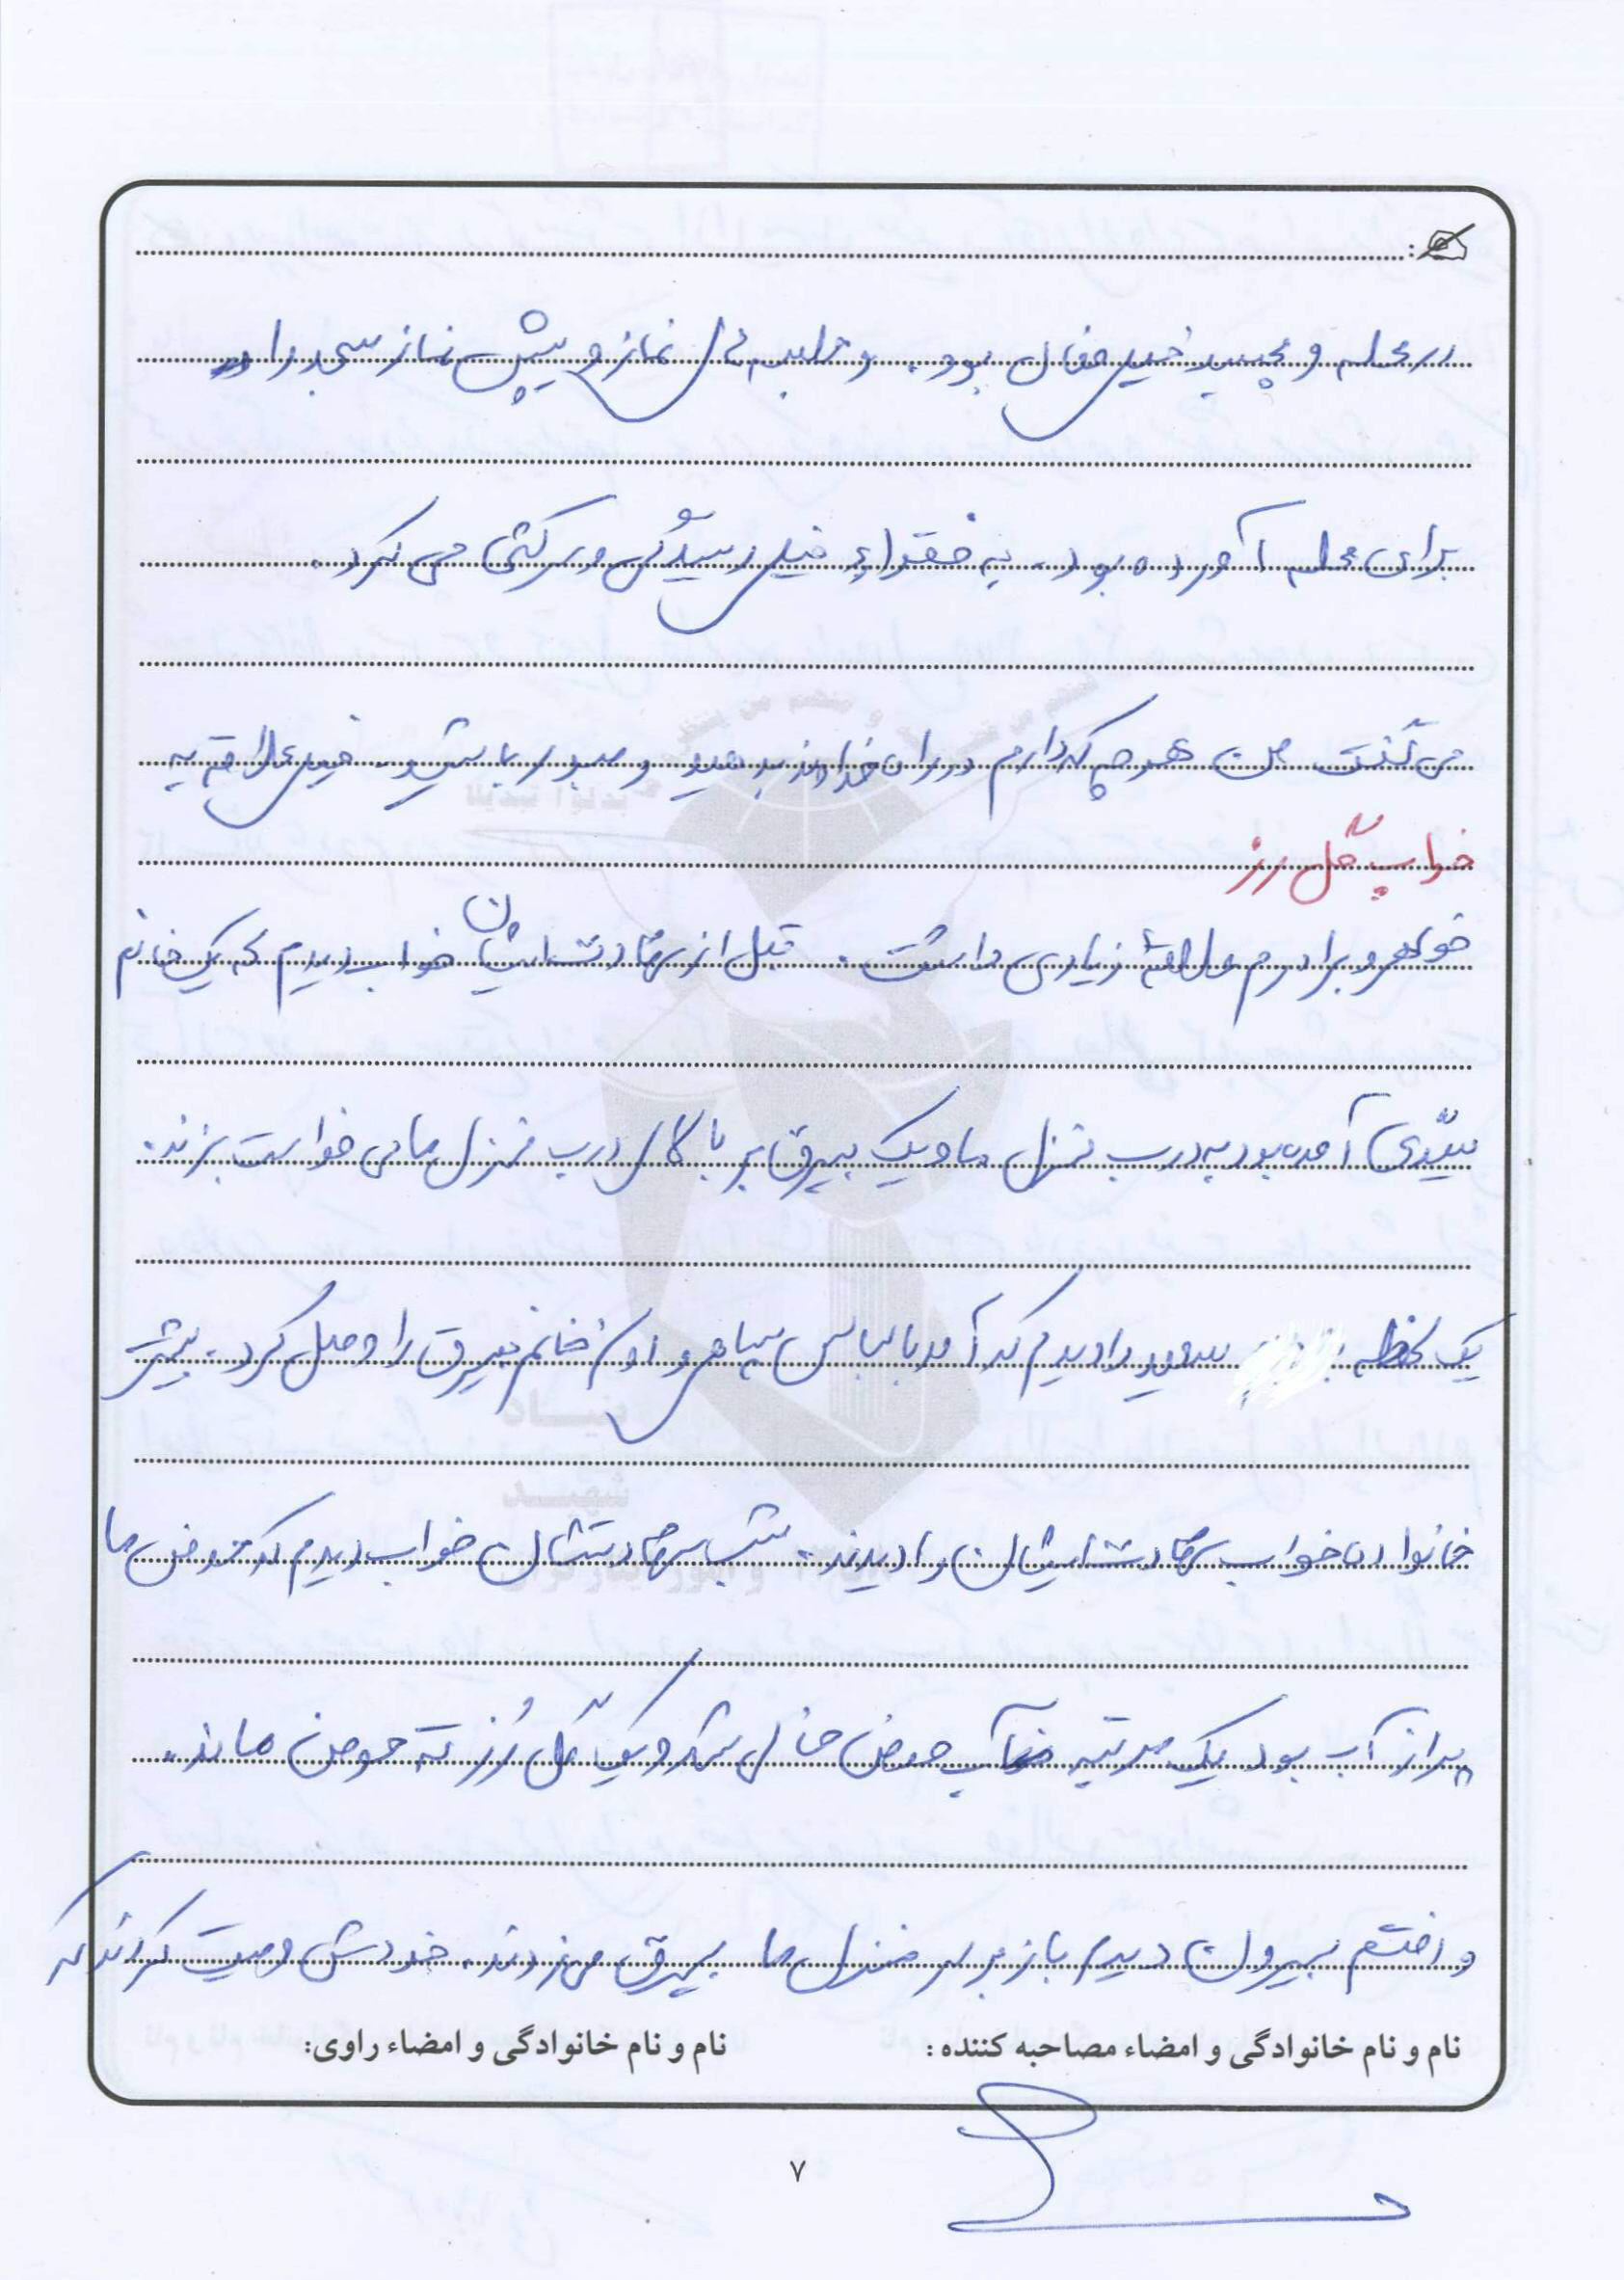 در محله و بسیج خیلی فعال بود. و جلسه های نماز و پیش نماز مسجد را
برای محله آورده بود. به فقراء خیلی رسیدگی و سرکشی می کرد.
می گفت من هر چه که دارم در راه خداوند بدهید و صبور باشید. خیلی علاقه به
خواب گل رز
خواهر و برادرم علاقه زیادی داشت. قبل از شهادت ایشان خواب دیدم که یک خانم
سیّدی آمده بود به درب منزل ما و یک بیرق بر بالای درب منزل ما می خواست بزند.
یک لحظه سعید را دیدم که آمد با لباس سیاهی و اون خانم بیرق را وصل کرد. بیشتر
خانواده خواب شهادت ایشان را دیدند. شب شهادتشان خواب دیدم که حوض ما
پر از آب بود یک مرتبه آب حوض خالی شد و یک گل رُز ته حوض ماند.
و رفتم بیرون دیدم باز بر سر منزل ما بیرق می زدند. خودش وصیت کردند که
نام و نام خانوادگی و امضاء مصاحبه کننده : نام و نام خانوادگی و امضاء راوی:
۷